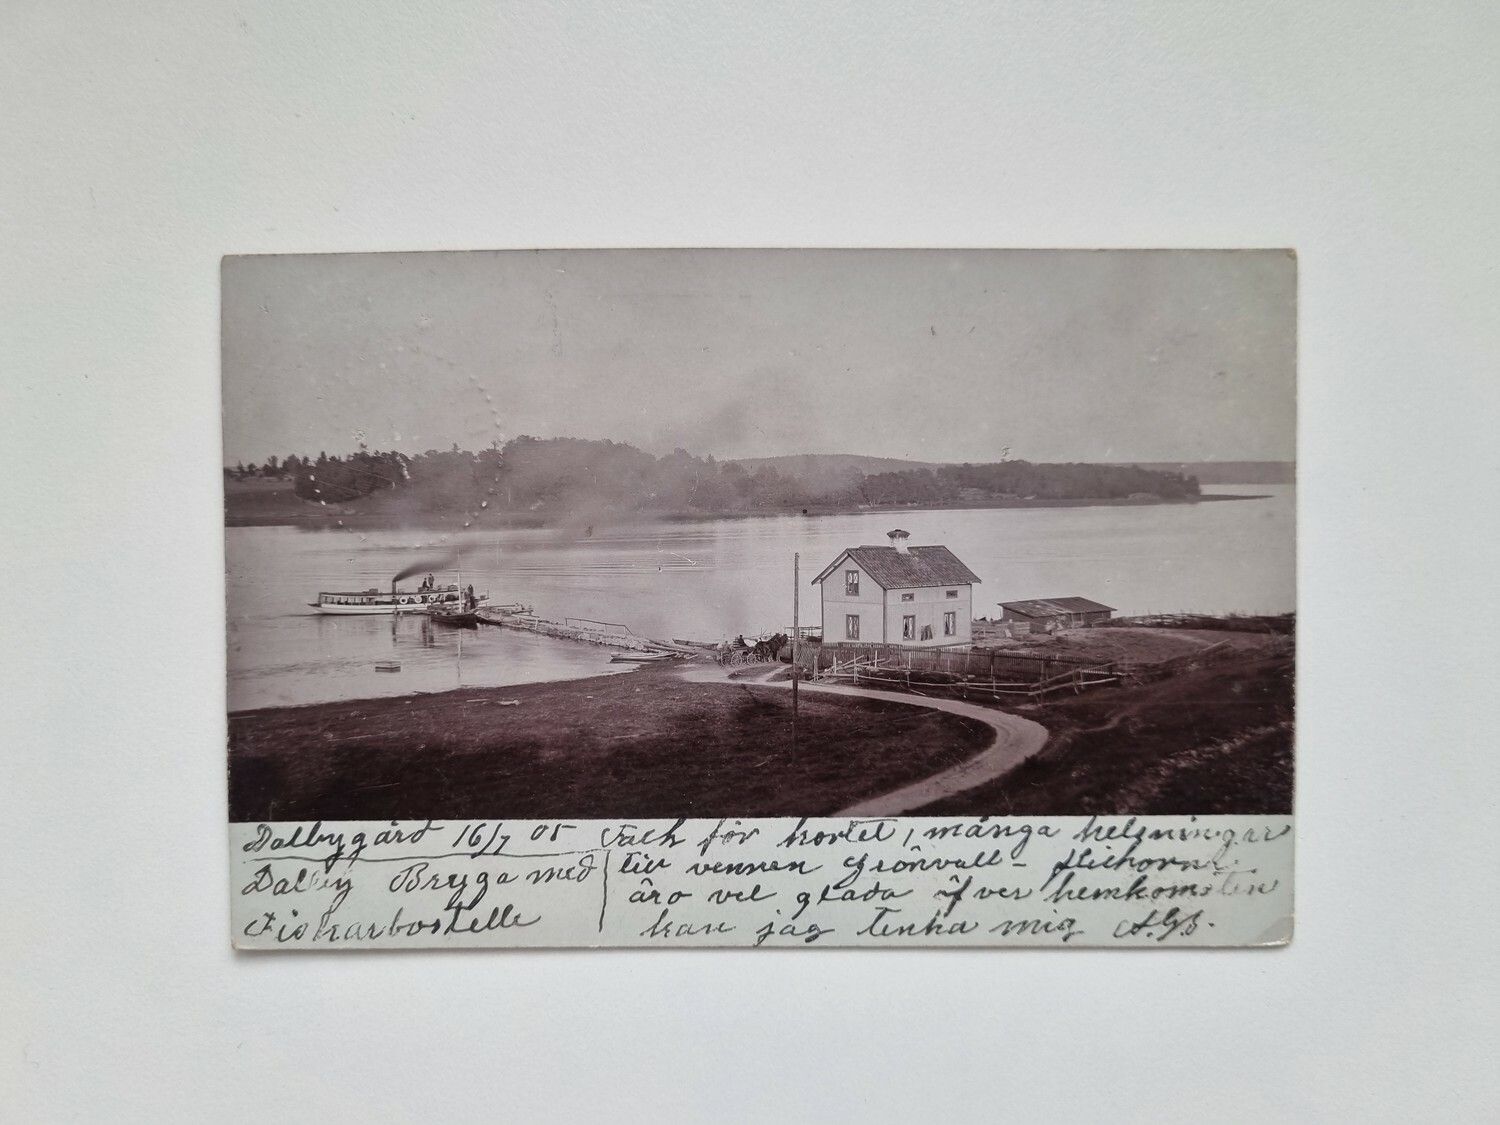 Dalbygård 16/7 05
Dalby Brygga med
Fiskarbostelle
Tack för kortet, många helsningar
till vennen Grönvall -
äro vel glada öfver hemkomsten
kan jag tenka mig A.G.S.